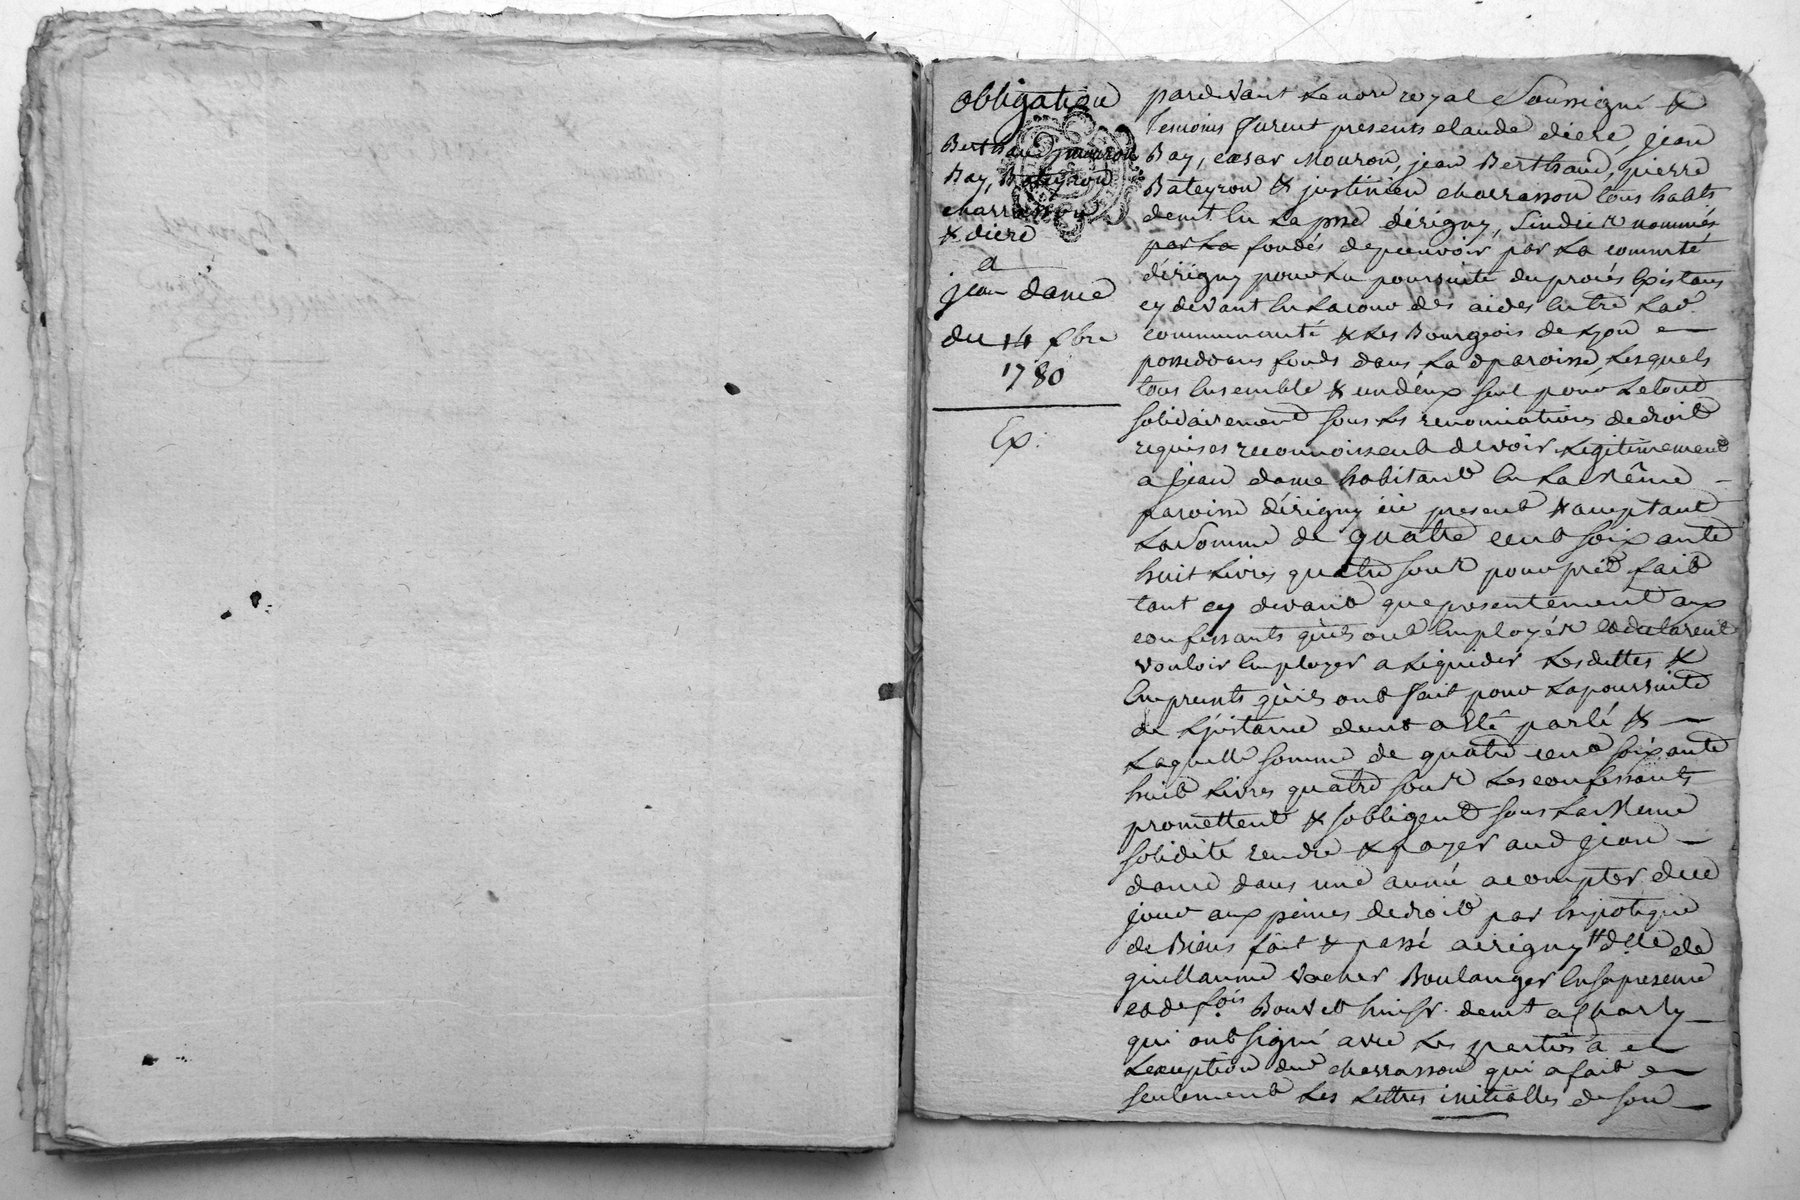 obligation
Berthaud, mouron
Bay, Bateyron
charrasson
& diere
a
jean dame
du 14 xbre
1780
Ex:
pardevant Le nore royal Soussigné &
Temoins furent presents claude diere, jean
Bay, cæsar Mouron, jean Berthaud, pierre
Bateyron & justinien charrasson tous habts
demt en La psse dérigny, Sindics nommés
par La fondés de pouvoir par La commté
dérigny pour La poursuite du procés Existans
cy devant en La cour des aides entre Lad
communauté & Les Bourgeois de Lyon
possedans fonds dans La d paroisse, Lesquels
tous Ensemble & un deux seul pour Le tout
solidairement sous Les renonciations de droit
requises reconnoissent devoir Legitimement
a jean dame habitant En La Même
paroisse dérigny ici present & acceptant
La Somme de quatre cent soixante
huit Livres quatre sous pour prêt fait
tant cy devant que presentement aux
confessants qu'ils ont Employés et declarent
vouloir Employer a Liquider Les dettes &
Emprunts qu'ils ont fait pour La poursuite
de L'jnstance dont a Eté parlé &
Laquelle somme de quatre cent soixante
huit Livres quatre sous Les confessants
promettent & sobligent sous La Meme
solidité rendre & payer aud jean
dame dans une année a compter de ce
jour aux peines de droit par hipoteque
de Biens fait & passé a irigny dlle de
guillaume vacher Boulanger En sa presence
et de fois Bouvet huissr demt a charly
qui ont signé avec Les parties a
Lexception dud charrasson qui a fait
seulement Les Lettres initialles de son